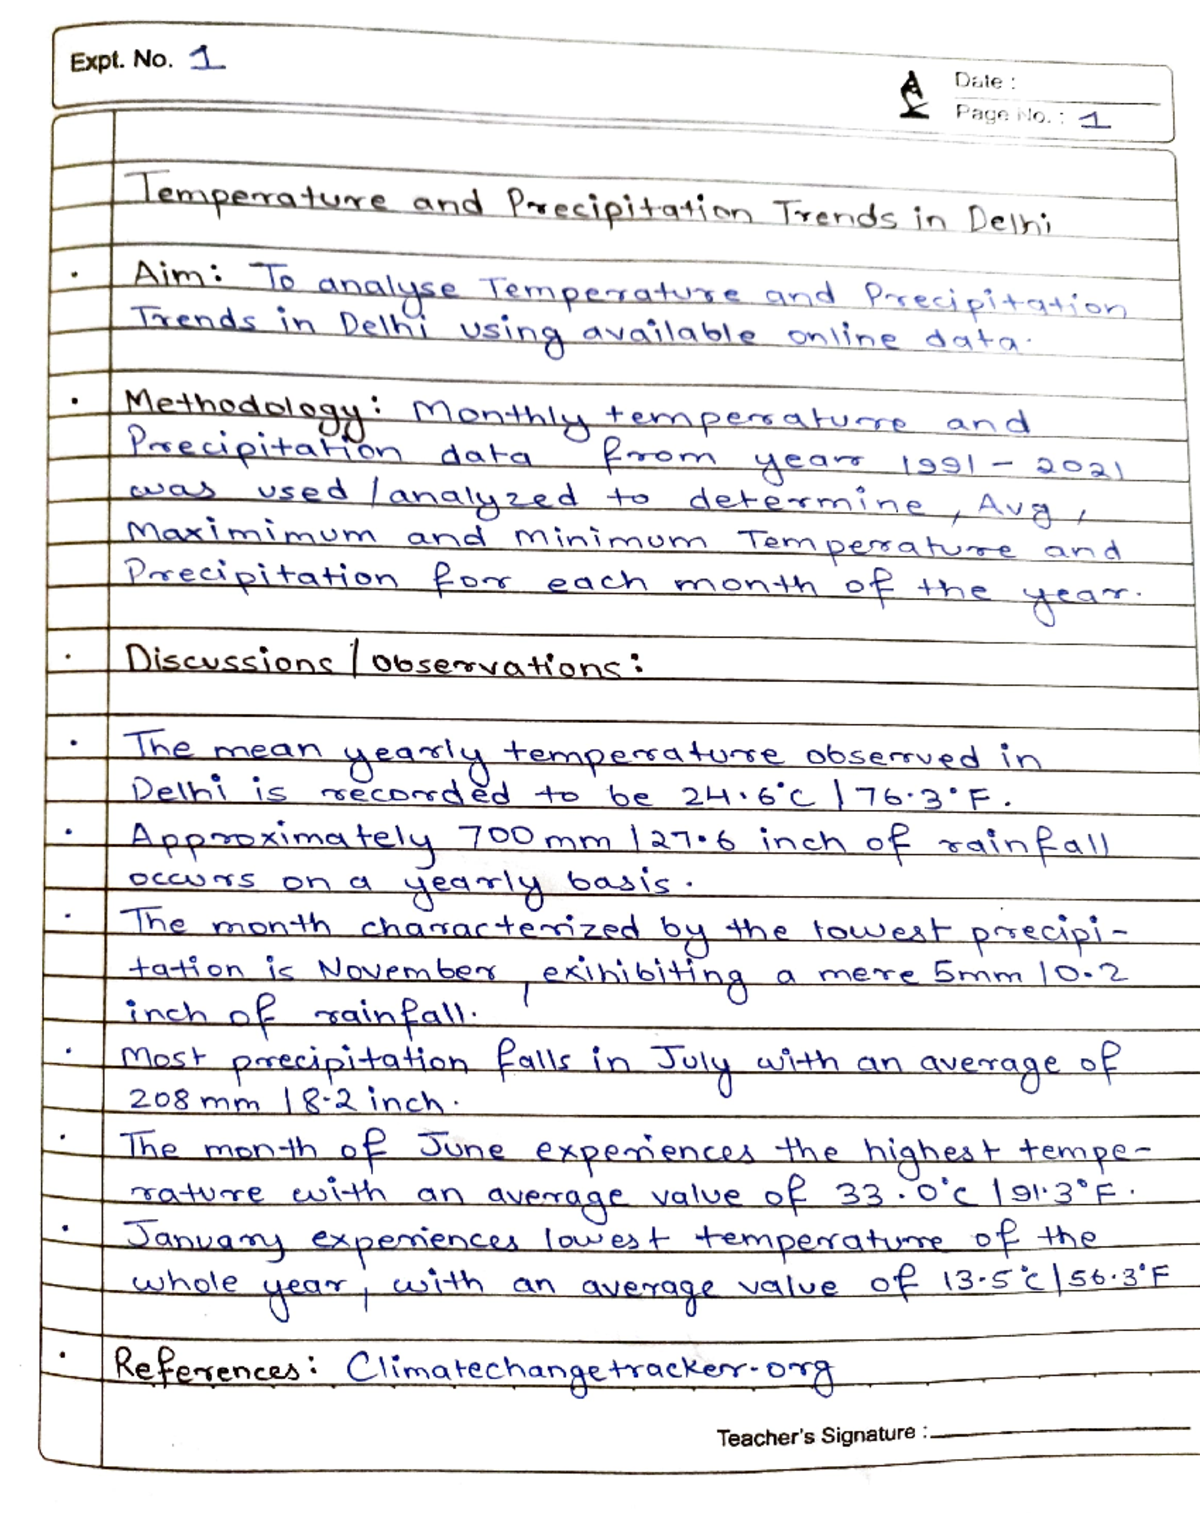 Expt. No. 1
Date :
Page No. : 1
Temperature and Precipitation Trends in Delhi
• Aim: To analyse Temperature and Precipitation
Trends in Delhi using available online data.
• Methodology: Monthly temperature and
Precipitation data from year 1991 - 2021
was used / analyzed to determine, Avg,
Maximimum and minimum Temperature and
Precipitation for each month of the year.
• Discussions / observations:
• The mean yearly temperature observed in
Delhi is recorded to be 24.6°C / 76.3°F.
• Approximately 700 mm / 27.6 inch of rainfall
occurs on a yearly basis.
• The month characterized by the lowest precipi-
tation is November, exihibiting a mere 5mm / 0.2
inch of rainfall.
• Most precipitation falls in July with an average of
208 mm / 8.2 inch.
• The month of June experiences the highest tempe-
rature with an average value of 33.0°C / 91.3°F.
• January experiences lowest temperature of the
whole year, with an average value of 13.5°C / 56.3°F
• References: Climatechangetracker.org
Teacher's Signature :